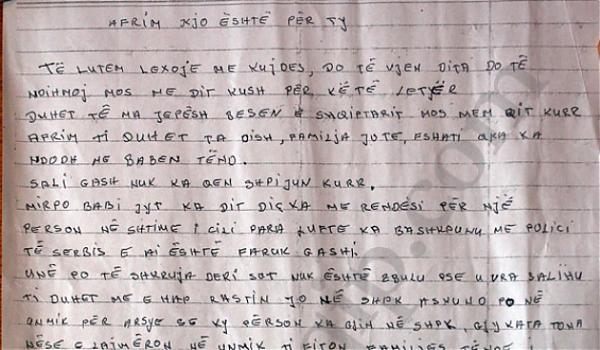 AFRIM KJO ËSHTË PËR TY
TË LUTEM LEXOJE ME KUJDES, DO TË VJEN DITA DO TË
NDIHMOJ MOS ME DIT KUSH PËR KËTË LETJËR
DUHET TË MA JEPËSH BESEN E SHQIPTARIT MOS MEM QIT KURR
AFRIM TI DUHET TA DISH, FAMILJA JUTE, FSHATI QKA KA
NDODH ME BABEN TËND.
SALI GASH NUK KA QEN SHPIJUN KURR.
MIRPO BABI JYT KA DIT DIÇKA ME RENDËSI PËR NJË
PERSON NË SHTIME I CILI PARA LUFTE KA BASHKPUNU ME POLICI
TË SERBIS E AI ËSHTË FARUK GASHI.
UNË PO TË SHKRUJA DERI SOT NUK ËSHTË ZBULU PSE U VRA SALIHU
TI DUHET ME E HAP RASTIN JO NË SHPK ASKUND PO NË
UNMIK PËR ARSYE SE KY PËRSON KA GJIN NË SHPK, GJYKATA TONA
NËSE E LAJMËRON NË UNMIK TI FITON FAMILJES TËNDE
vip.com